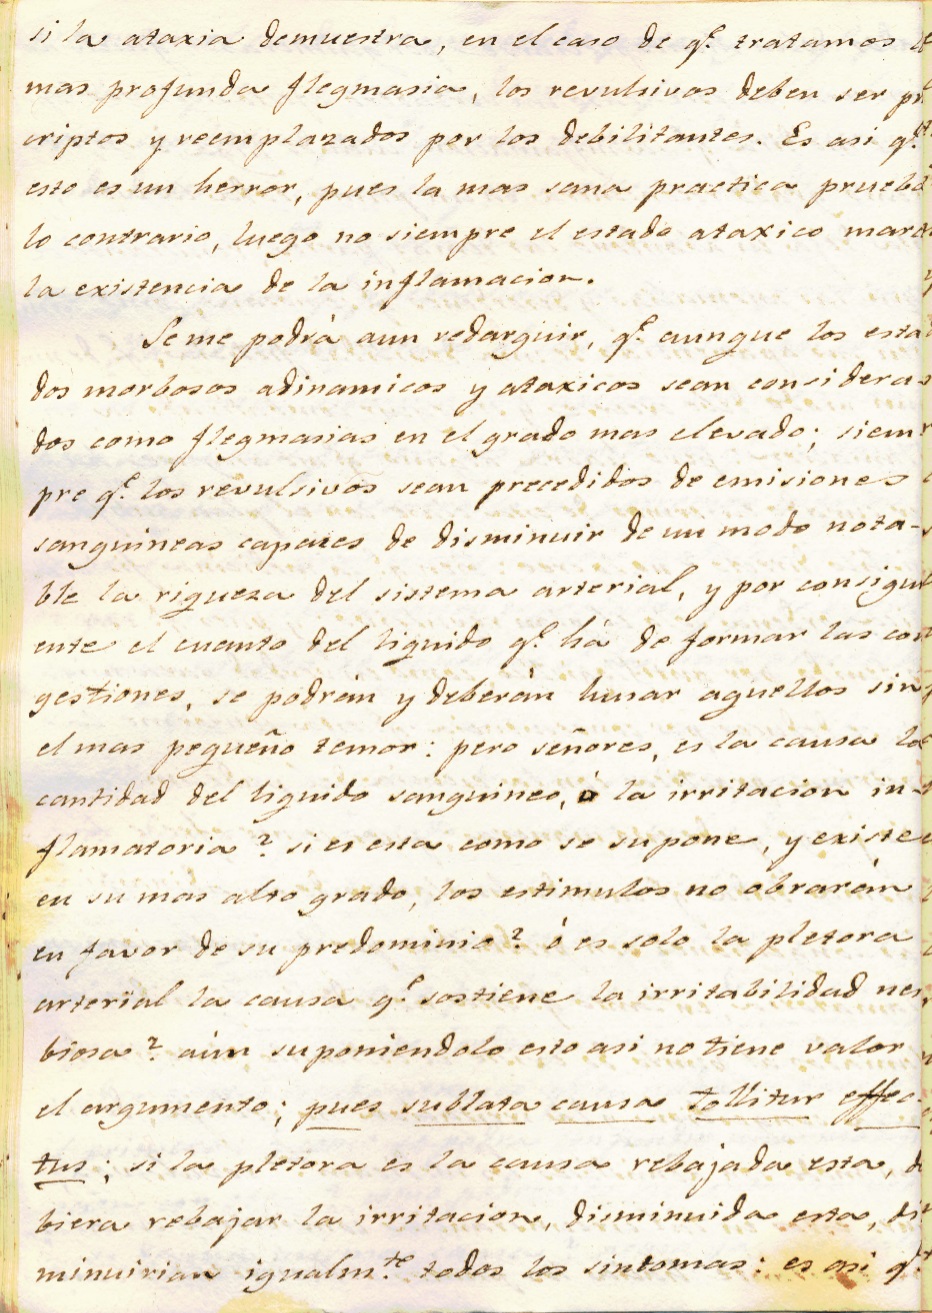 si la ataxia demuestra, en el caso de qᵉ tratamos
mas profunda flegmasia, los revulsivos deben ser pr
criptos y reemplazados por los debilitantes. Es asi qᵉ
esto es un herror, pues la mas sana practica prueba
lo contrario, luego no siempre el estado ataxico marca
la existencia de la inflamacion.
Se me podrá aun redarguir, qᵉ aunque los esta
dos morbosos adinamicos y ataxicos sean considera-
dos como flegmasias en el grado mas elevado; siem
pre qᵉ los revulsivos sean precedidos de emisiones
sanguineas capaces de disminuir de un modo nota-
ble la riqueza del sistema arterial, y por consigui
ente el cuanto del liquido qᵉ há de formar las con
gestiones, se podrán y deberán husar aquellos sin
el mas pequeño temor: pero señores, es la causa la
cantidad del liquido sanguineo, ó la irritacion in-
flamatoria? si es esta como se supone, y existe
en su mas alto grado, los estimulos no obrarán
en favor de su predominio? ó es solo la pletora
arterial la causa qᵉ sostiene la irritabilidad ner
biosa? aún suponiendolo esto asi no tiene valor
el argumento; pues sublata causa tollitur effec-
tus; si la pletora es la causa rebajada esta, de
biera rebajar la irritacion, disminuida esta, di
minuirian igualmᵗᵉ todos los sintomas: es asi qᵉ